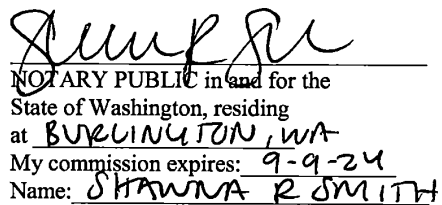 NOTARY PUBLIC in and for the
State of Washington, residing
at BURLINGTON, WA
My commission expires: 9-9-24
Name: SHAWNA R SMITH